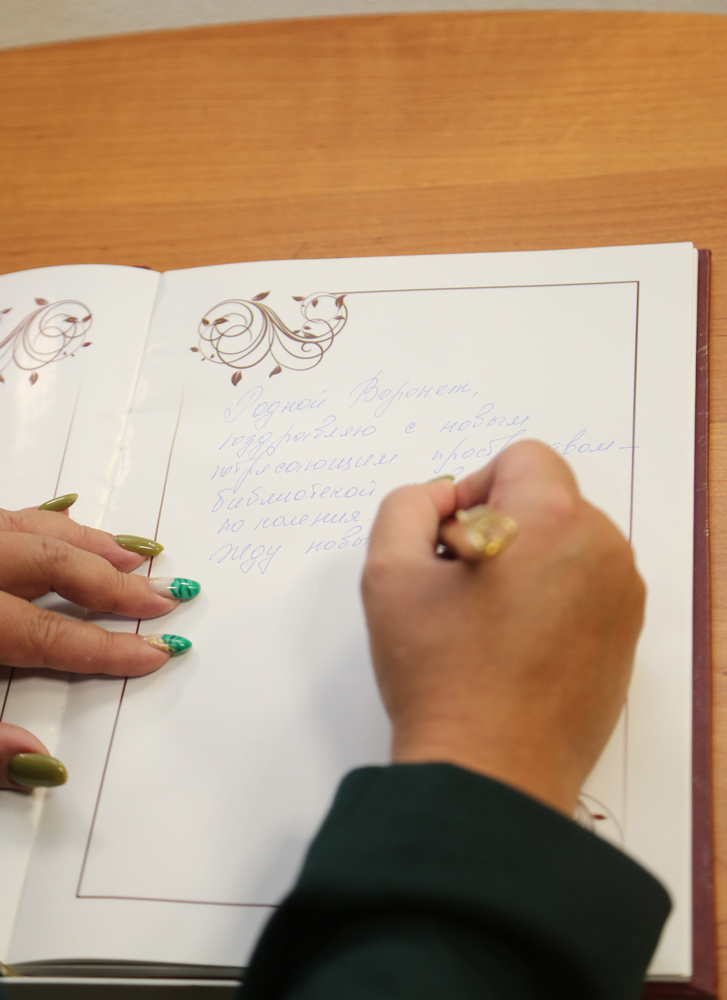 Родной Воронеж,
поздравляю с новым
потрясающим
библиотекой
поколения
Жду